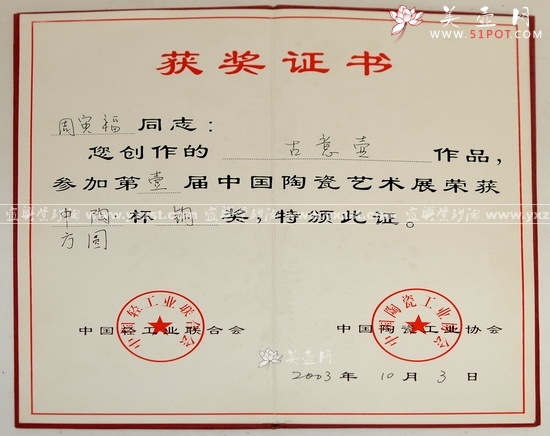 美壶网
www.51POT.com
获奖证书
周寅福同志：
您创作的 古意壶 作品，
参加第壹届中国陶瓷艺术展荣获
中陶 杯 铜 奖，特颁此证。
方圆
中国轻工业联合会
中国轻工业联合会
中国陶瓷工业协会
中国陶瓷工业协会
美壶网
2003年10月3日